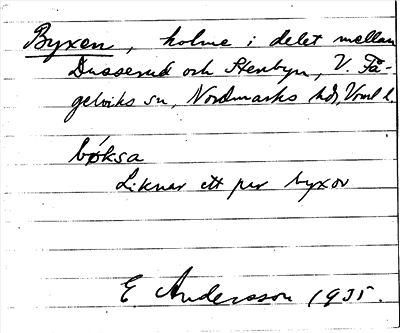 Byxen, holme i delet mellan
Dusserud och Stenbyn, V. Få-
gelviks sn, Nordmarks hd, Vrml l.
bǿksa
Liknar ett par byxor
E. Andersson 1935.